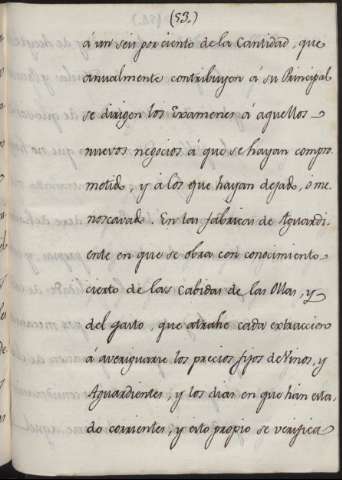 (53.)
á un seis por ciento de la Cantidad, que
anualmente contribuyen á su Principal
se dirigen los Examenes á aquellos
nuevos negocios á que se hayan compro
metido, y á los que hayan dejado, ó me
noscavado. En las fábricas de Aguardi
ente en que se obra con conocimiento
cierto de las Cabidas de las Ollas, y
del gasto, que atrahe cada extraccion
á averiguarse los precios fijos de Vinos, y
Aguardientes, y los dias en que han esta
do corrientes, y esto propio se verifica